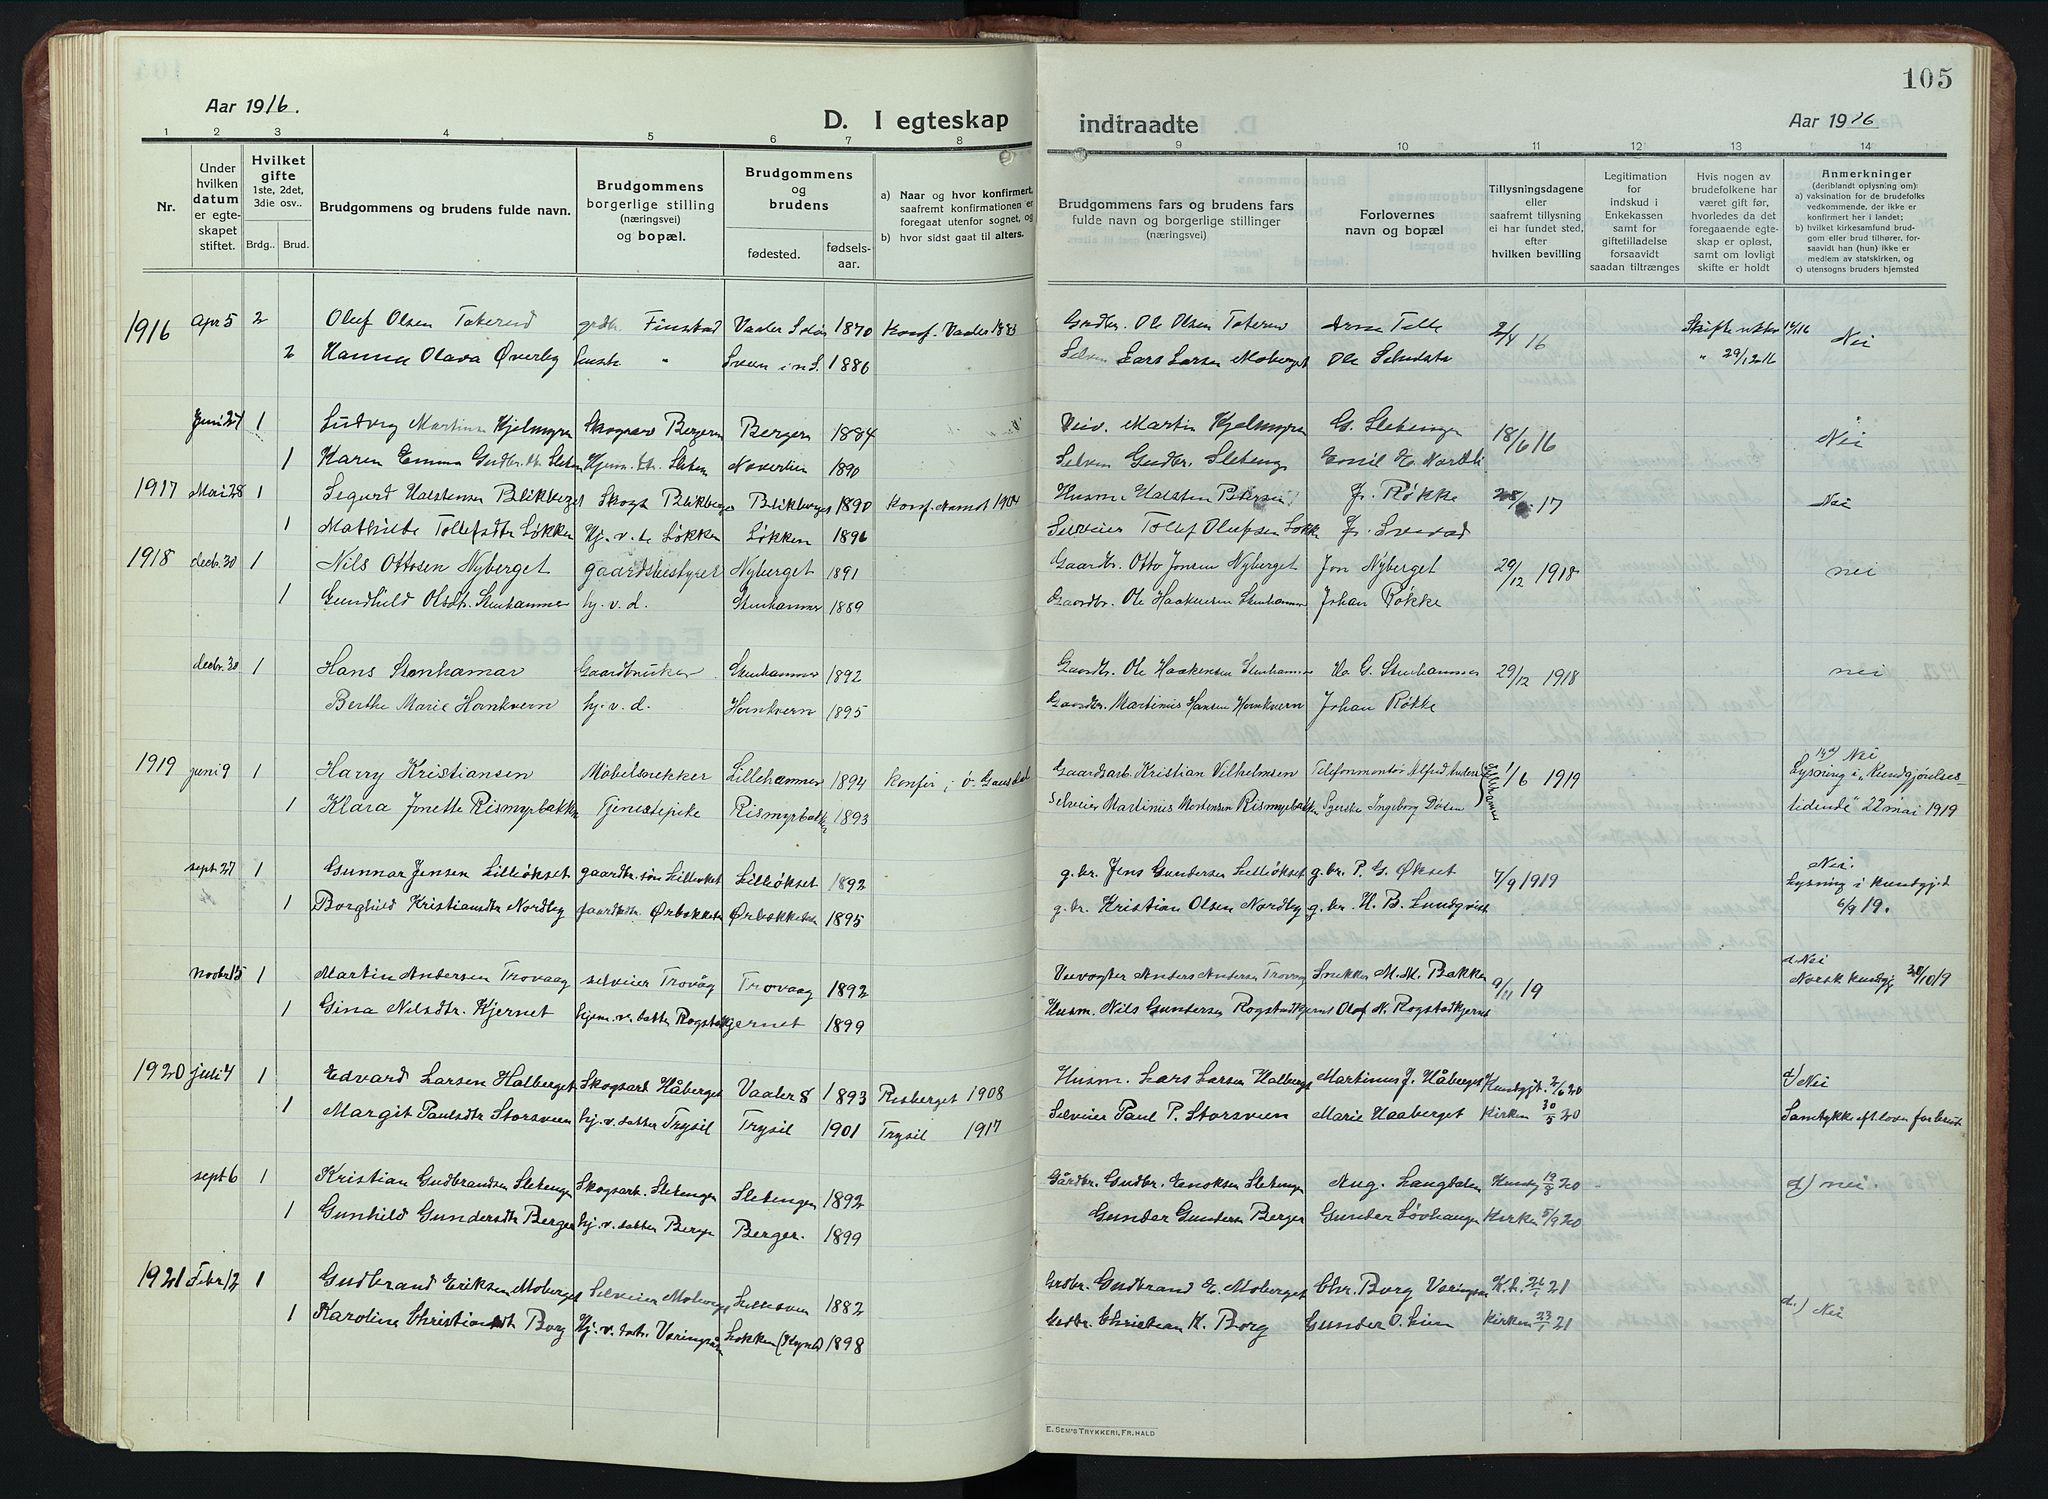 105
Aar 1916.
D. I egteskap
indtraadte
Aar 1916
1 2 3 4 5 6 7 8 9 10 11 12 13 14
Nr.
Under hvilken datum er egteskapet stiftet.
Hvilket gifte 1ste, 2det, 3die osv..
Brdg.. Brud.
Brudgommens og brudens fulde navn.
Brudgommens borgerlige stilling (næringsvei) og bopæl.
Brudgommens og brudens
fødested. fødsels-aar.
a) Naar og hvor konfirmert, saafremt konfirmationen er foregaat utenfor sognet, og
b) hvor sidst gaat til alters.
Brudgommens fars og brudens fars fulde navn og borgerlige stillinger (næringsvei)
Forlovernes navn og bopæl
Tillysningsdagene eller saafremt tillysning ei har fundet sted, efter hvilken bevilling
Legitimation for indskud i Enkekassen samt for giftetilladelse forsaavidt saadan tiltrænges
Hvis nogen av brudefolkene har været gift før, hvorledes da det foregaaende egteskap er opløst, samt om lovligt skifte er holdt
Anmerkninger (deriblandt oplysning om):
a) vaksination for de brudefolks vedkommende, der ikke er konfirmert her i landet;
b) hvilket kirkesamfund brudgom eller brud tilhører, forsaavidt han (hun) ikke er medlem av statskirken, og
c) utensogns bruders hjemsted
1916 Apr 5 2 Oluf Olsen grdbr. Finstad Vaaler Solør 1870 Konf. Vaaler Grdbr. Ole Olsen Arne 2/4 16 Nei
2 Hanna Olava Øverby " Sveen i n.S. 1886 Selvei Lars Larsen Moberget Ole " 29/12 016
Juni 24 1 Ludvig Martins. Kjelmyren Skogsarb Bergern Bergern 1884 Martin Kjelmyren G. Sletengen 18/6 16 Nei
1 Karen Emma Gudbr.dtr. Sleten Hjem. dtr. Sleten 1890 Selvei Gudbr. Sleteng Emil
1917 Mai 28 1 Segurd Halstensen Blikberget Skogs Blikberget Blikberget 1890 Konf. 1904 Husm. Halsten Petersen J. Røkke 17 Nei
1 Mathilde Tollefsdtr Løkken Hj. v. Løkken Løkken 1896 Selveier Tollef Olufsen Løkk J.
1918 decbr. 30 1 Nils Ottosen Nyberget gaardsbestyrer Nyberget 1891 Gaardbr. Otto Jonsen Nyberget Jon Nyberget 29/12 1918 nei
1 Gundhild Olsdtr. Stenhammer hj. v. d. Stenhammer 1889 Gaardbr. Ole Haakensen Stenhammer Johan Røkke
decbr. 30 1 Hans Stenhamar Gaardbruker Stenhammer 1892 Gaardbr. Ole Haakensen Stenhammer G. Stenhammer 29/12 1918 nei
Berthe Marie Hornkvern hj. v. d. Hornkvern 1895 Gaardbr. Martinus Hansen Hornkvern Johan Røkke
1919 juni 9 1 Harry Kristiansen Møbelsnekker Lillehammer 1894 konfir. i ø. Gausdal Gaardsarb. Kristian Vilhelmsen Telefonmontør Alfred Lillehammer 1/6 1919 Nei Lysning i „Kundgjørelses-
1 Klara Jonette Rismyrbakken Tjenestepike Rismyrbakken 1893 Selveier Martinus Mortensen Rismyrbakken Syerske Ingeborg tidende" 22 mai 1919
sept 27 1 Gunnar Jensen Lilleøkset gaardbr. søn Lilleøkset Lilleøkset 1892 g. br. Jens Gundersen Lilleøkset g. br. P. G. Økset 7/9 1919 Nei. Lysning i kundgjd
1 Borghild Kristiansdtr Nordby gaardbdtr. Ørbækket Ørbækket 1895 g. br. Kristian Olsen Nordby g. br. H. B. Lundqvist 6/9 19.
novbr 15 1 Martin Andersen Trovaag selveier Trovåg Trovaag 1892 Anders Andersen Trovaag Snekker M. M. Bakken 9/11 19 Nei Norsk kundgj.
1 Gina Nilsdtr. Kjernet hjem. v. datter Rogstadkjernet 1899 Husm. Nils Gundersen Rogstadkjernet Olaf N. Rogstadkjernet
1920 juli 4 1 Edvard Larsen Halberget Skogsarb Håberget Vaaler S 1893 Risberget 1908 Husm. Lars Larsen Halberget Martinus J. Håberget Kundgjt. 2/6 20 d) Nei
1 Margit Paulsdtr Storsveen hj. v. datter Trysil Trysil 1901 Trysil 1917 Selveier Paul P. Storsveen Marie Haaberget Kirken 30/5 20 Samtykke eft. loven for brud
sept 6 1 Kristian Gudbrandsen Sletengen Skogsarb. Sletengen Sletengen 1892 Gårdbr. Gudbr. Enoksen Sletengen Aug. Langdalen Kundgj 19/8 20 d) nei.
1 Gunhild Gundersdtr Berger hj. v. datter Berger Berger. 1899 Gunder Gundersen Berger Gunder Løvhaugen Kirken 5/9 20
1921 Febr 12 1 Gudbrand Eriksen Moberget Selveier Moberget 1882 Grdbr. Gudbrand E. Moberget Chr. Borg K. t. 21 d.) Nei
1 Karoline Christiansdt Borg Hj. v. datr. Løkken (Hynd) 1898 Grdbr. Christian K. Borg Gunder O. Lien Kirken 23/1 21
E. SEM'S TRYKKERI, FR.HALD